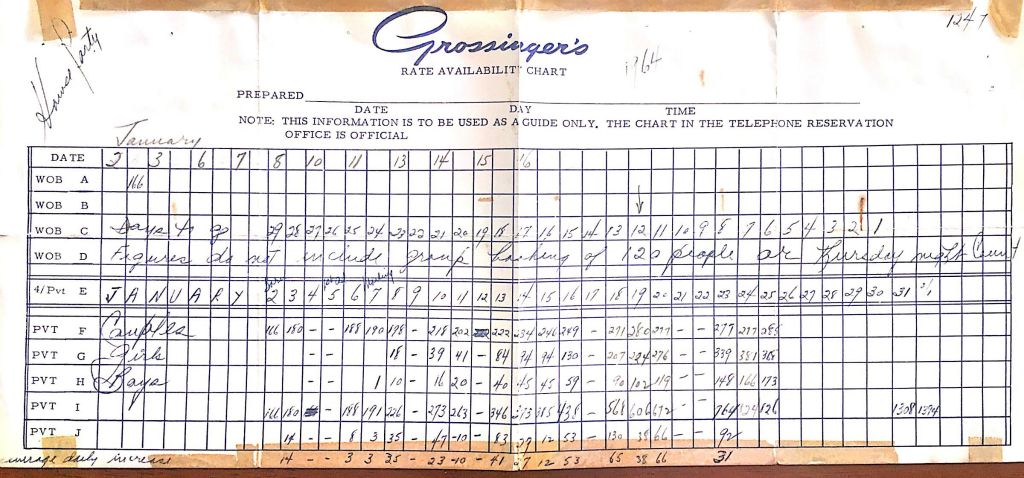 1247
Grossinger's
1964
RATE AVAILABILITY CHART
PREPARED
DATE DAY TIME
NOTE: THIS INFORMATION IS TO BE USED AS A GUIDE ONLY. THE CHART IN THE TELEPHONE RESERVATION
OFFICE IS OFFICIAL
January
DATE 2 3 6 7 8 10 11 13 14 15 16
WOB A 166
WOB B
WOB C Days to go 29 28 27 26 25 24 23 22 21 20 19 18 17 16 15 14 13 12 11 10 9 8 7 6 5 4 3 2 1
WOB D Figures do not include group booking of 120 people or Thursday night Count
4/Pvt E JANUARY 2 3 4 5 6 7 8 9 10 11 12 13 14 15 16 17 18 19 20 21 22 23 24 25 26 27 28 29 30 31
PVT F Couples 166 180 - - 188 190 198 - 218 202 222 234 246 249 - 271 280 277 - - 277 277 285
PVT G Girls - - 18 - 39 41 - 84 94 94 130 - 207 224 276 - - 339 351 368
PVT H Boys - - 1 10 - 16 20 - 40 45 45 59 - 90 102 119 - - 148 166 173
PVT I 166 180 - 188 191 226 - 273 263 - 346 373 385 438 - 568 606 672 - - 764
1308 1394
PVT J 14 - - 8 3 35 - 47 -10 - 83 29 12 53 - 130 38 66 - - 92
average daily increase 14 - - 3 3 35 - 23 -10 - 41 12 53 65 38 66 31